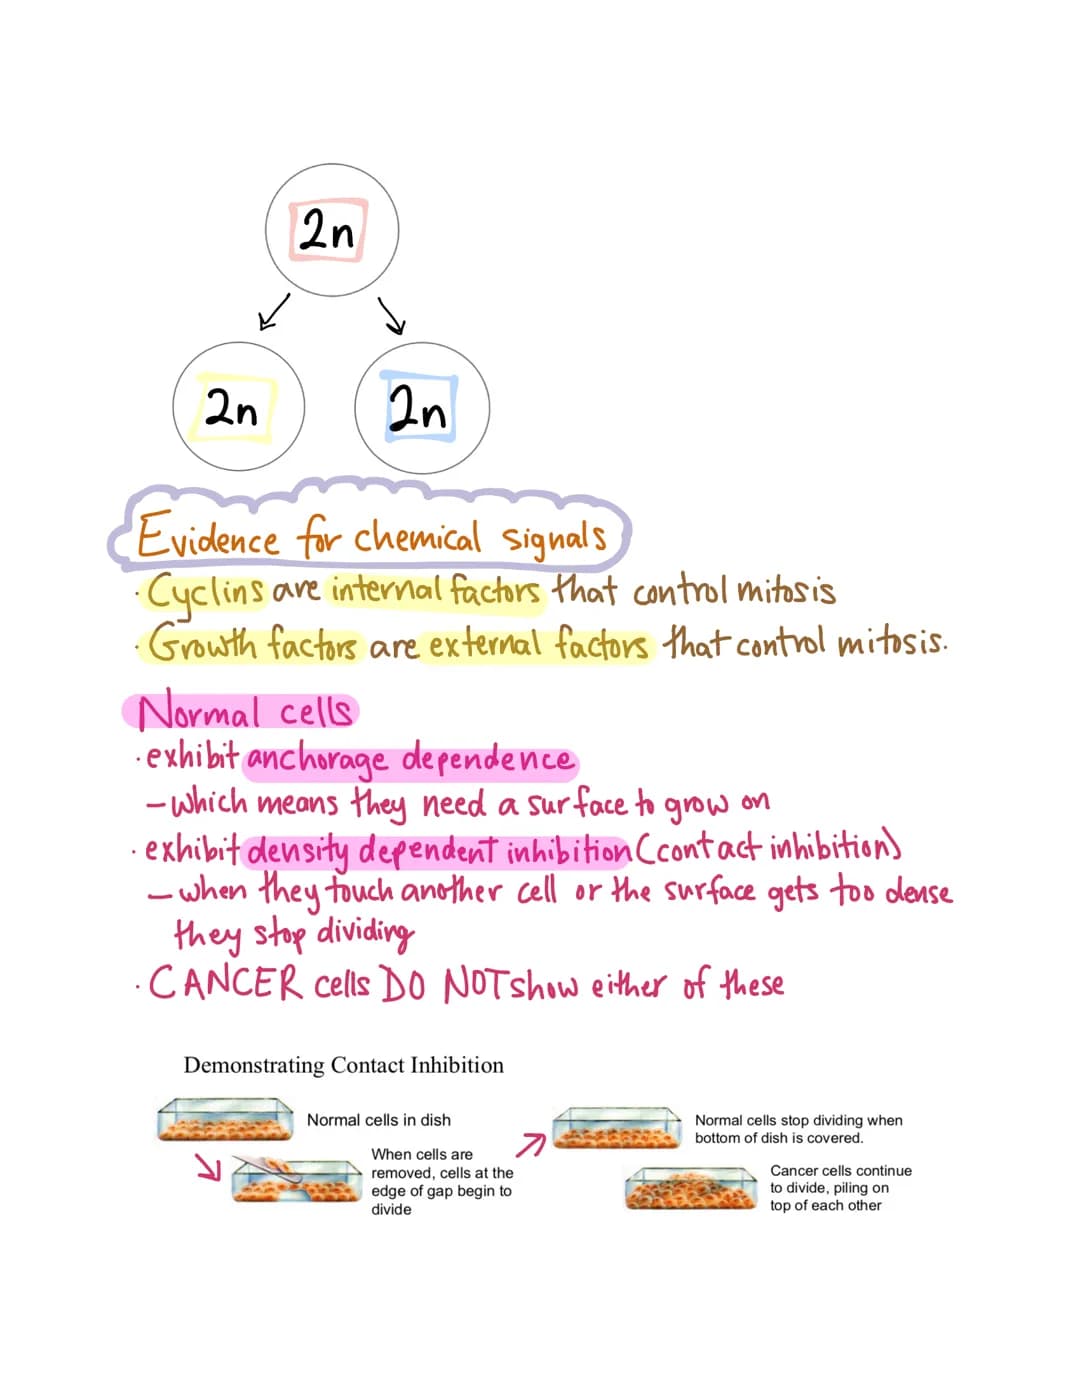 2n
2n
2n
Evidence for chemical signals
· Cyclins are internal factors that control mitosis
· Growth factors are external factors that control mitosis.
Normal cells
· exhibit anchorage dependence
– which means they need a surface to grow on
· exhibit density dependent inhibition (contact inhibition)
– when they touch another cell or the surface gets too dense
they stop dividing
· CANCER cells DO NOT show either of these
Demonstrating Contact Inhibition
Normal cells in dish
When cells are
removed, cells at the
edge of gap begin to
divide
Normal cells stop dividing when
bottom of dish is covered.
Cancer cells continue
to divide, piling on
top of each other